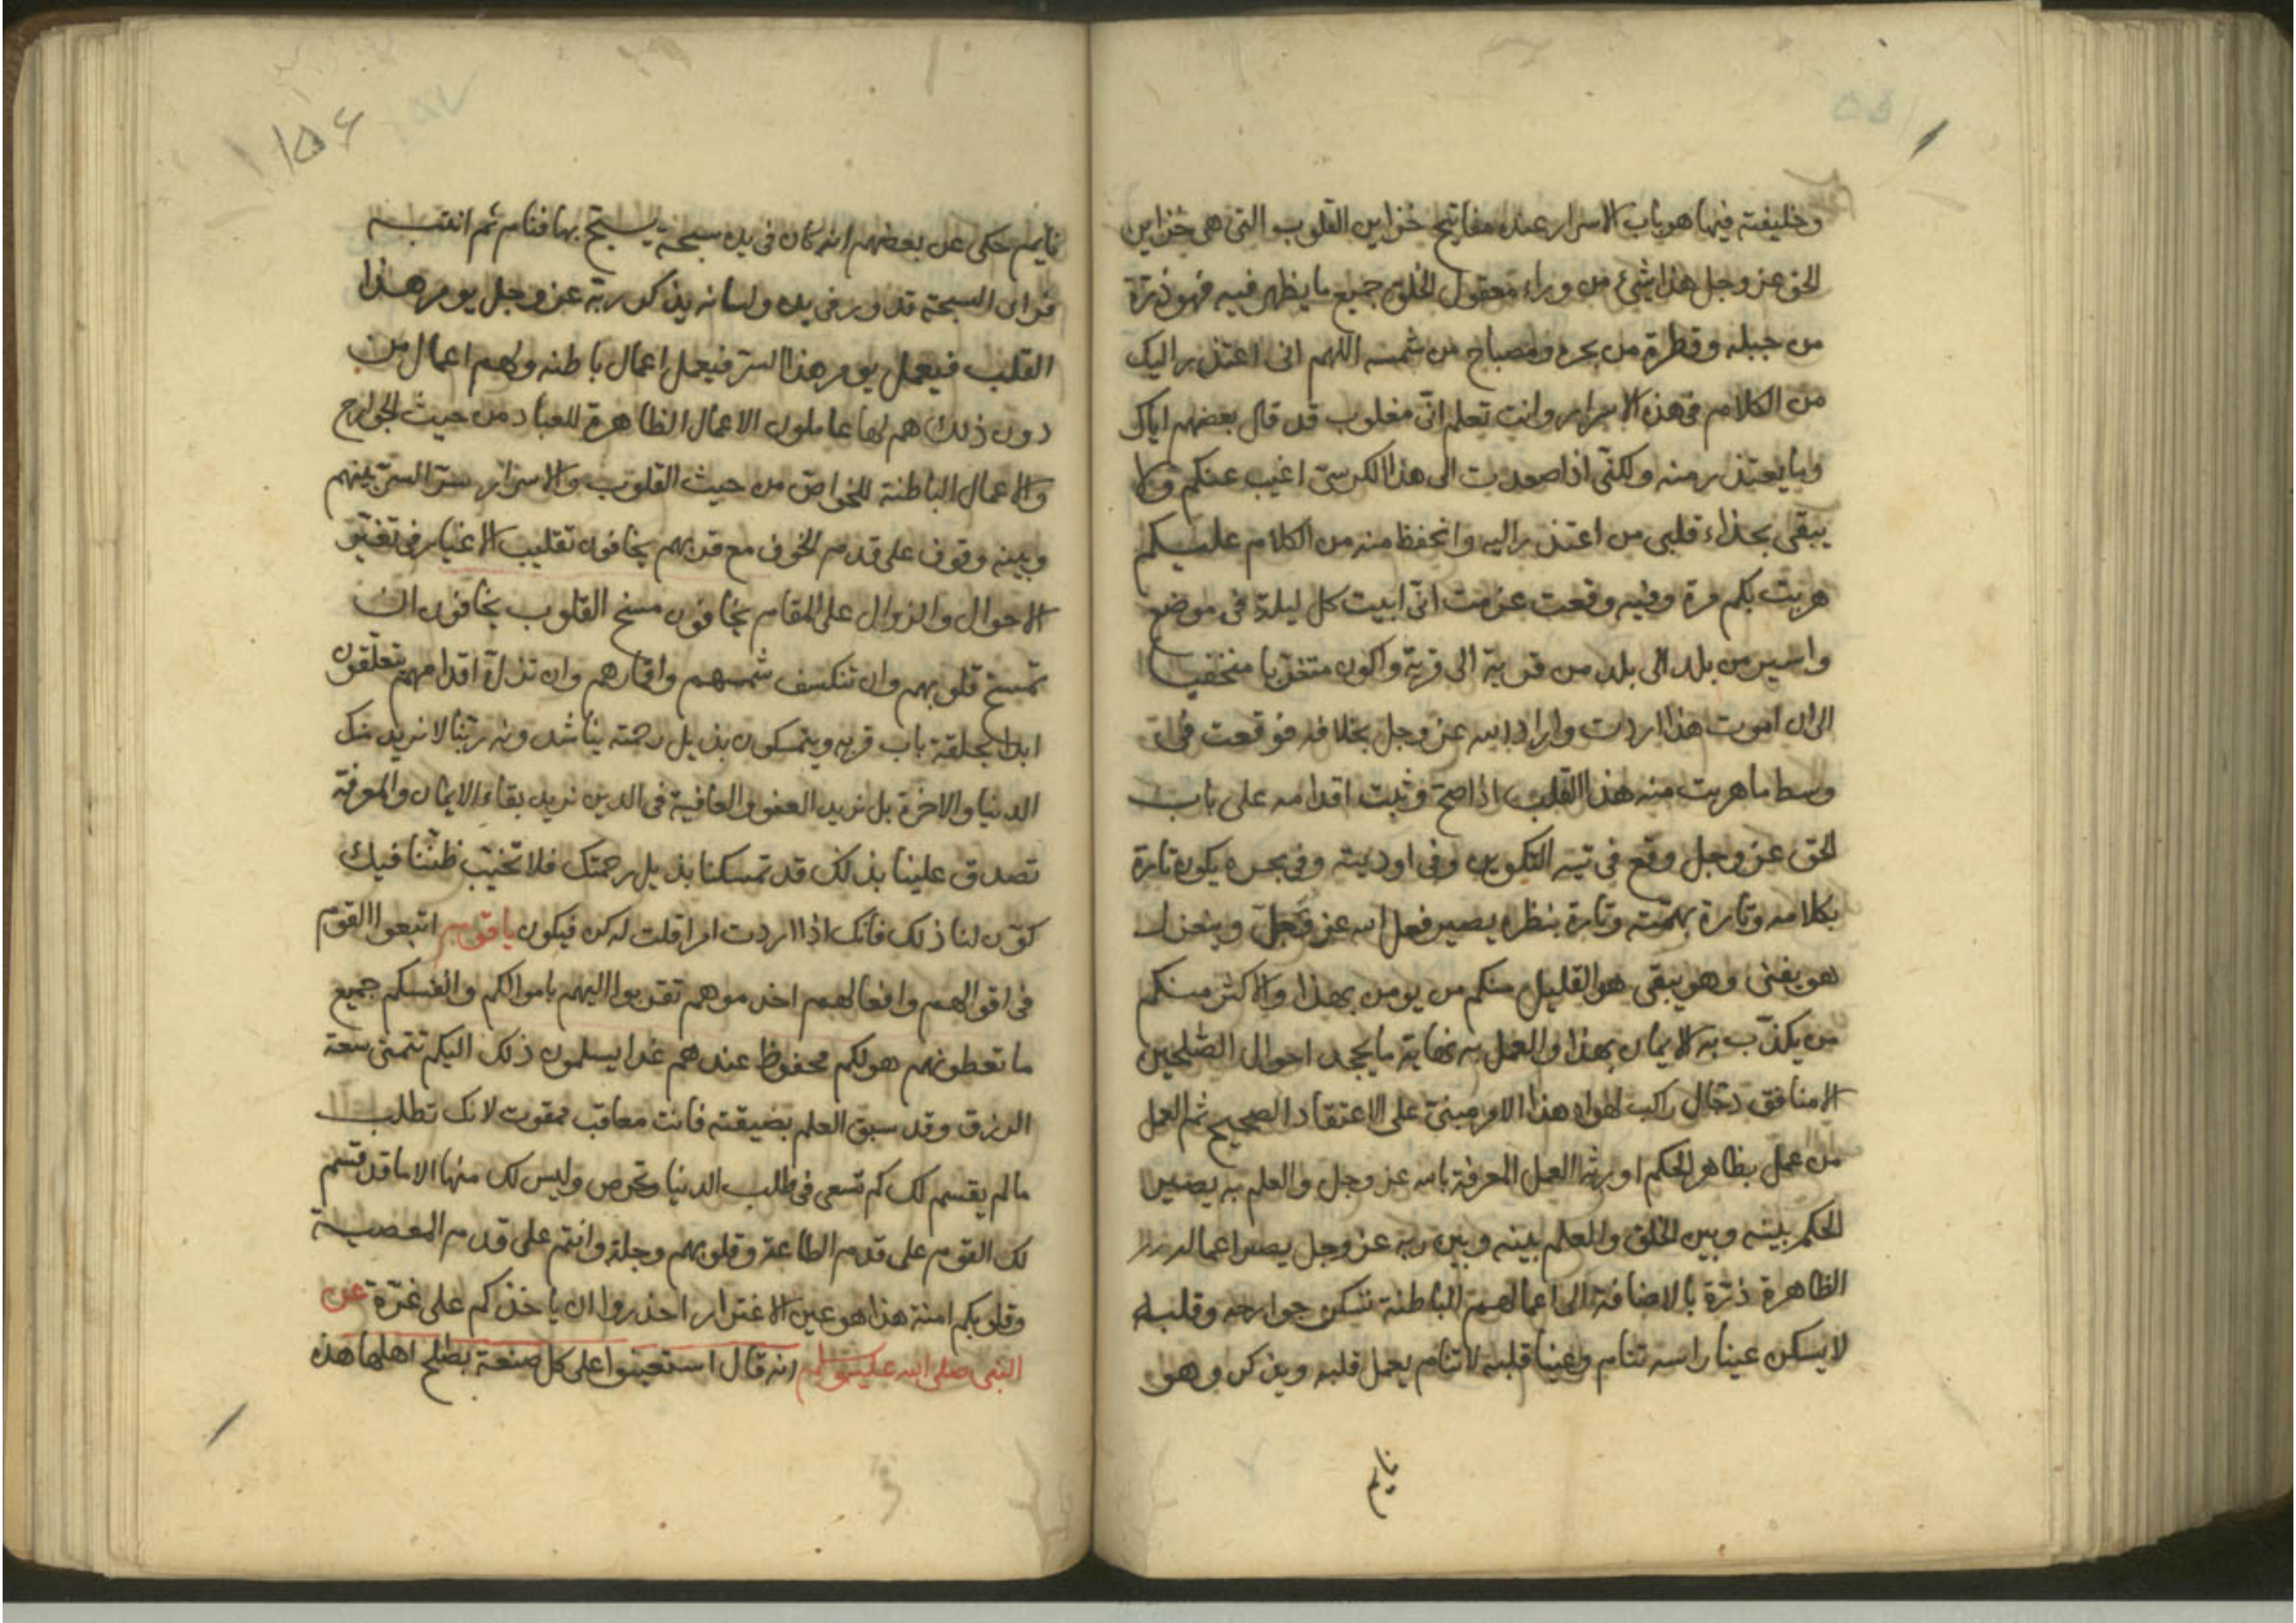 وخليفته فيها هو باب الاسرار عنده مفاتيح خزاين القلوب التى هى خزاين
الحق عز وجل هذا شئ من وراء معقول الخلق جميع ما يظهر فيه فهو ذرة
من جبله وقطرة من بحره ومصباح من شمسه اللهم انى اعتذر اليك
من الكلام فى هذه الاسرار وانت تعلم انى مغلوب قد قال بعضهم اياك
وما يعتذر منه ولكنى اذا صعدت الى هذا الكرسى اغيب عنكم ولا
يبقى بحذاء قلبى من اعتذر اليه واتحفظ منه من الكلام عليكم
هربت بكم مرة وفيه وقعت عزمت انى ابيت كل ليلة فى موضع
واسير من بلد الى بلد من قرية الى قرية واكون متغربا متخفيا
الى ان اموت هذا اردت واراد الله عز وجل بخلافه فوقعت فى
وسط ما هربت منه هذا القلب اذا صح وثبت اقدامه على باب
الحق عز وجل وقع فى تيه التكوين وفى اوديته وفى بحره يكون تارة
بكلامه وتارة بهمته وتارة بنظره يصير فعل الله عز وجل وينعزل
هو يفنى وهو يبقى هو القليل منكم من يومن بهذا والاكثر منكم
من يكذب به الايمان بهذا والعمل به نهاية ما يجحد احوال الصلحين
الا منافق دجال راكب لهواه هذا الامر مبنى على الاعتقاد الصحيح ثم العمل
من عمل بظاهر الحكم اورثه العمل المعرفة بالله عز وجل والعلم به يصير
الحكم بينه وبين الخلق والعلم بينه وبين ربه عز وجل يصير اعماله
الظاهرة ذرة بالاضافة الى اعمالهم الباطنة تسكن جوارحه وقلبه
لا يسكن عينا راسه تنام وعينا قلبه لا تنام يعمل قلبه ويذكر وهو
نايم
١٥٦
نايم حكى عن بعضهم انه كان فى يده سبحة يسبح بها فنام ثم انتبه
فراى السبحة تدور فى يده ولسانه يذكر ربه عز وجل يومر هذا
القلب فيعمل يومر هذا السر فيعمل اعمال باطنه ولهم اعمال من
دون ذلك هم لها عاملون الاعمال الظاهرة للعباد من حيث الجوارح
والاعمال الباطنة للخواص من حيث القلوب والاسرار سر السر بينهم
وبينه وقوف على قدم الخوف مع قربهم يخافون تقليب الاغيار فى تغير
الاحوال والزوال على المقام يخافون مسخ القلوب يخافون ان
تمسخ قلوبهم وان تنكسف شمسهم واقمارهم وان تزل اقدامهم تعلقون
ابدا بحلقة باب قربه ويتمسكون بذيل رحمته يناشدونه ربنا لا نريد منك
الدنيا والاخرة بل نريد العفو والعافية فى الدين نريد بقاء الايمان والمعرفة
تصدق علينا بذلك قد تمسكنا بذيل رحمتك فلا تخيب ظننا فيك
كون لنا ذلك فانك اذا اردت امرا قلت له كن فيكون يا قوم اتبعوا القوم
فى اقوالهم وافعالهم اخدموهم تقربوا اليهم باموالكم وانفسكم جميع
ما تعطونهم هو لكم محفوظ عندهم غدا يسلمون ذلك اليكم تتمنى سعة
الرزق وقد سبق العلم بضيقته فانت معاقب ممقوت لانك تطلب
ما لم يقسم لك كم تسعى فى طلب الدنيا وتحرص وليس لك منها الا ما قد قسم
لك القوم على قدم الطاعة وقلوبهم وجلة وانتم على قدم المعصية
وقلوبكم امنة هذا هو عين الاغترار احذروا ان ياخذكم على غرة عن
النبى صلى الله عليه وسلم انه قال استعينوا على كل صنعة بصلح اهلها هذه